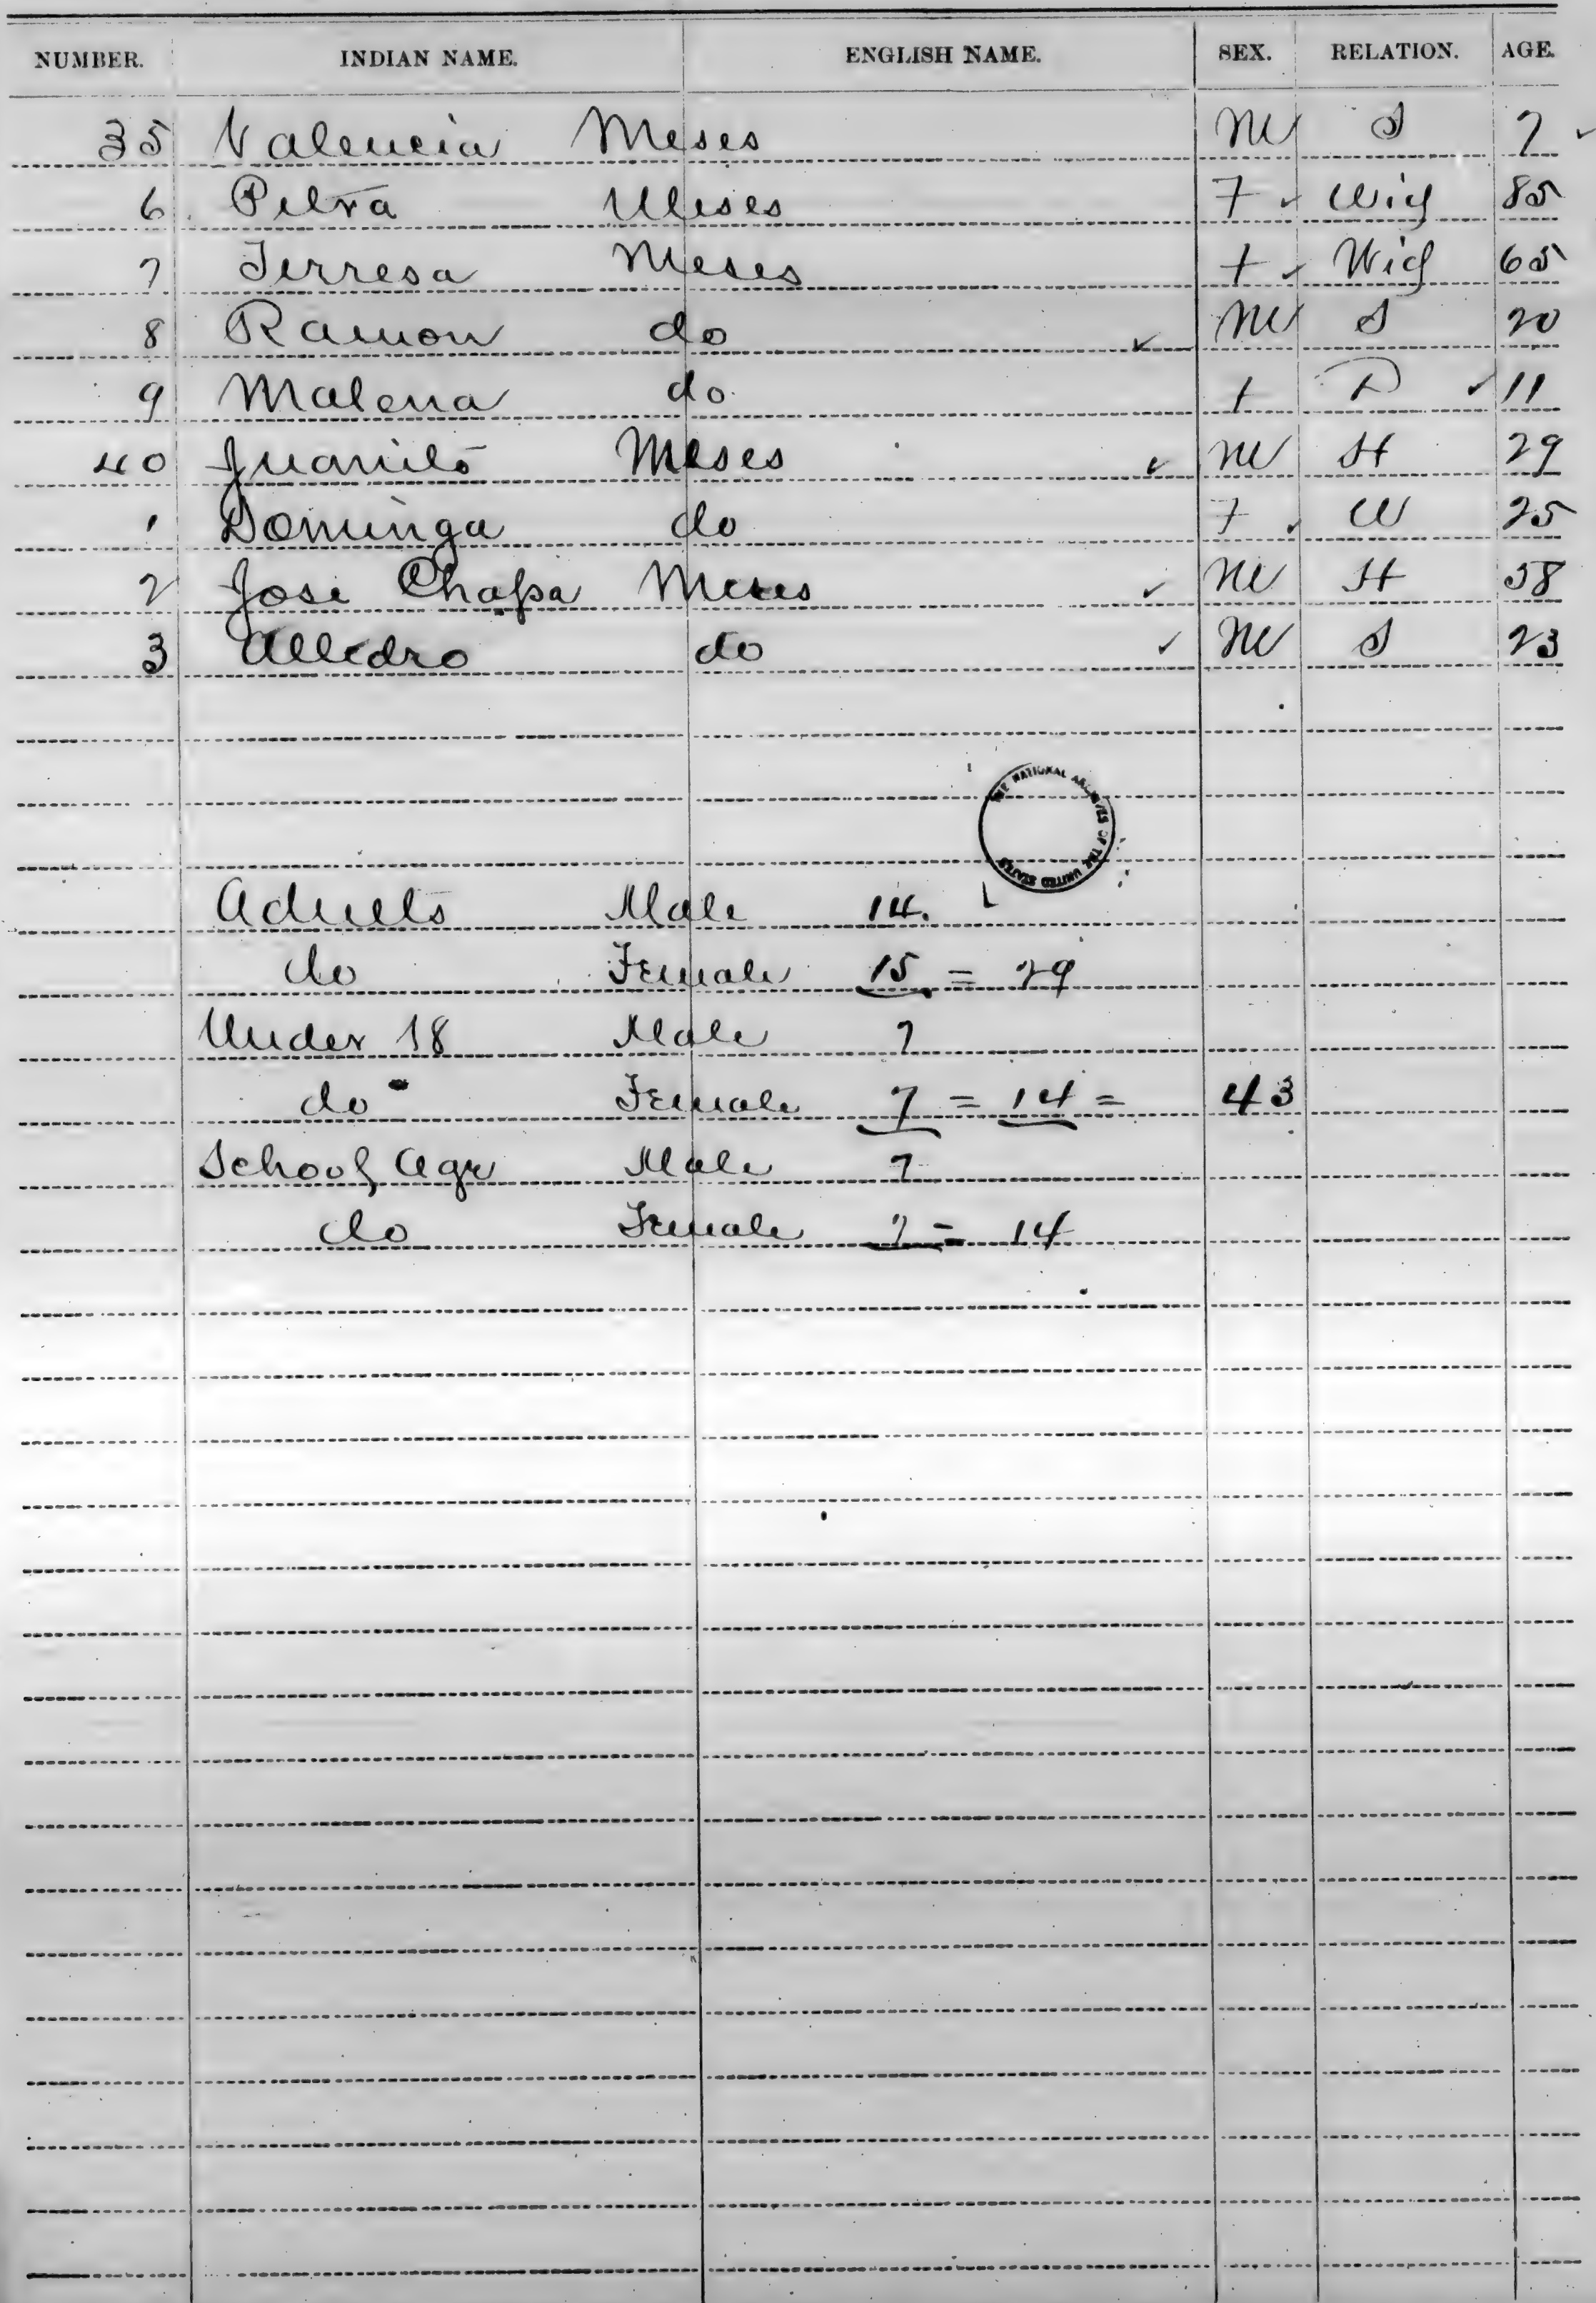 NUMBER. INDIAN NAME. ENGLISH NAME. SEX. RELATION. AGE.
35 Valencia Meses M S 7
6 Petra Meses F Wid 85
7 Terresa Meses f Wid 65
8 Ramon do M S 20
9 Malena do f D 11
40 Juanito Meses M H 29
1 Dominga do F W 25
2 Jose Chapa Meses M H 58
3 do M S 23
THE NATIONAL ARCHIVES OF THE UNITED STATES
Adults Male 14.
do Female 15 = 29
Under 18 Male 7
do Female 7 = 14 = 43
School Age Male 7
do Female 7 = 14